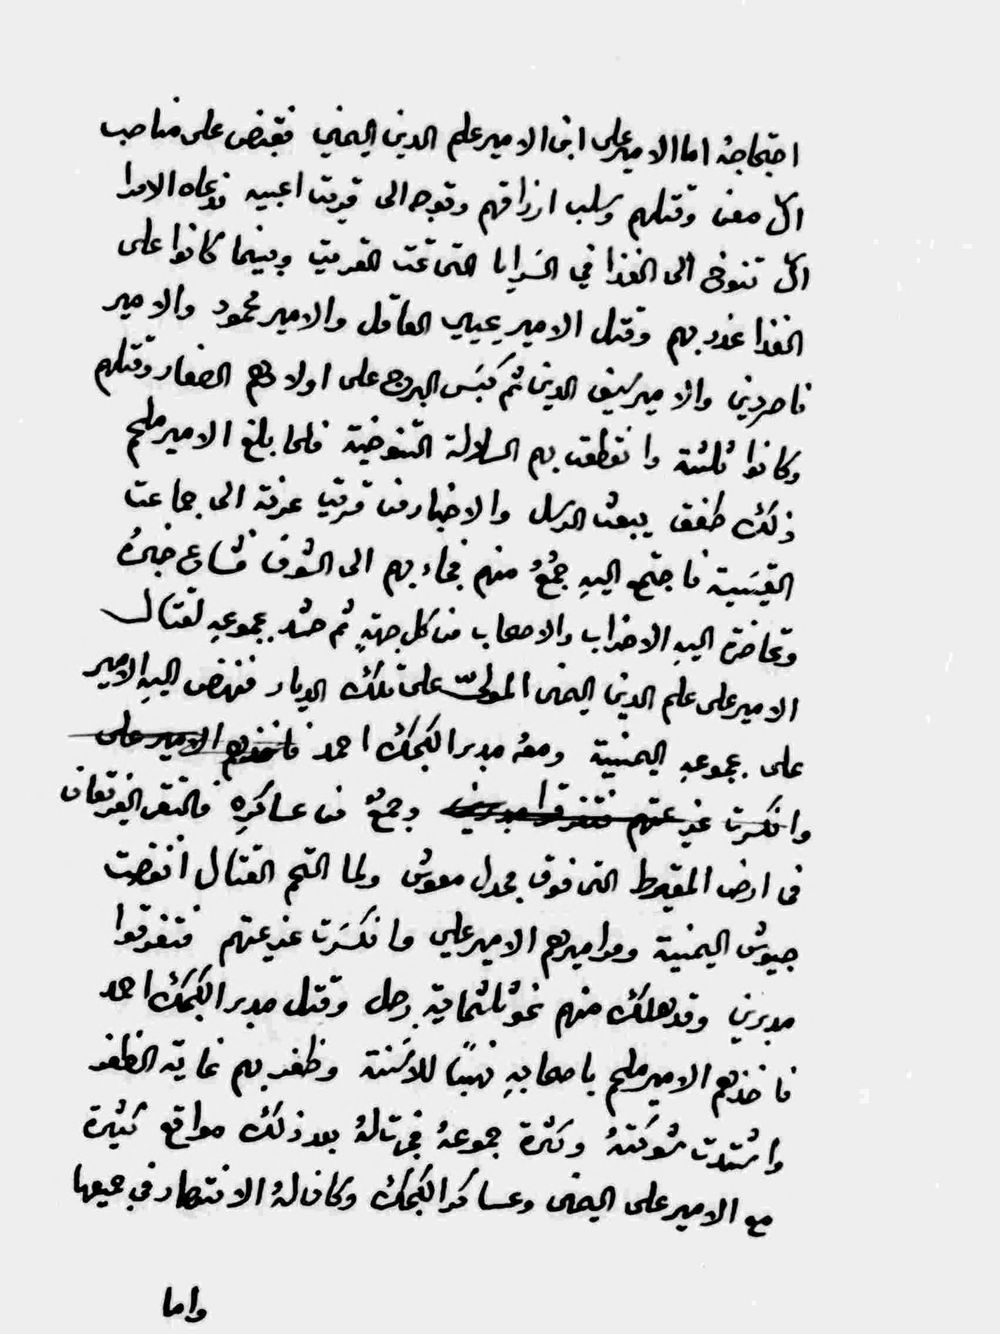 احتجاجهُ اما الامير على ابن الامير علم الدين اليمني فقبض على مناصب
ال معن وقتلهم وسلب ارزاقهم وتوجه الى قريت اعبيه فدعاه الامرا
ال تنوخ الى الغذا في السَرايا التى تحت القريت وبينما كانوا على
الغذا غدر بهم وقتل الامير يحيى العاقل والامير محمود والامير
ناصردين والامير سَيف الدين ثم كبَس البرج على اولادهم الصغار وقتلهم
وكانوا ثلثة وانقطعت بهم السلالة التنوخية فلما بلغ الامير ملحم
ذلك طفق يبعث الرسل والاخبار من قريت عرنة الى جماعت
القيسَية فاجتمع اليهِ جمعٌ منهم فجاء بهم الى الشوف فشاع خبرهُ
وتحاضرة اليهِ الاحزاب والاصحاب من كل جهةٍ ثم حشد بجموعهِ لقتال
الامير على علم الدين اليمنى المولّى على تلك الديار فنهض اليهِ الامير
على بجموعهِ اليمنيية ومعهُ مدبر الكجك احمد فاخذهم الامير على
وانكسرت عزيمتهم فتفرقوا مدبرين وجمعٌ من عساكرهِ فالتقى الفريقان
فى ارض المقيرط التى فوق مجدل معوش ولما التحم القتال انقضت
جيوش اليمنية وواميرهم الامير على وانكسَرت عزيمتهم فتفرقوا
مدبرين وقد هلك منهم نحو ثلثماية رجل وقتل مدبر الكجك احمد
فاخذهم الامير ملحم باصحابهِ نهبًا للاسَنة وظفر بهم غاية الظفر
واشتدت شوكتهُ وكثرة جموعهُ فجرتالهُ بعد ذلك مواقع كثيرة
مع الامير على اليمنى وعساكر الكجك وكان لهُ الانتصار في جميعها
واما